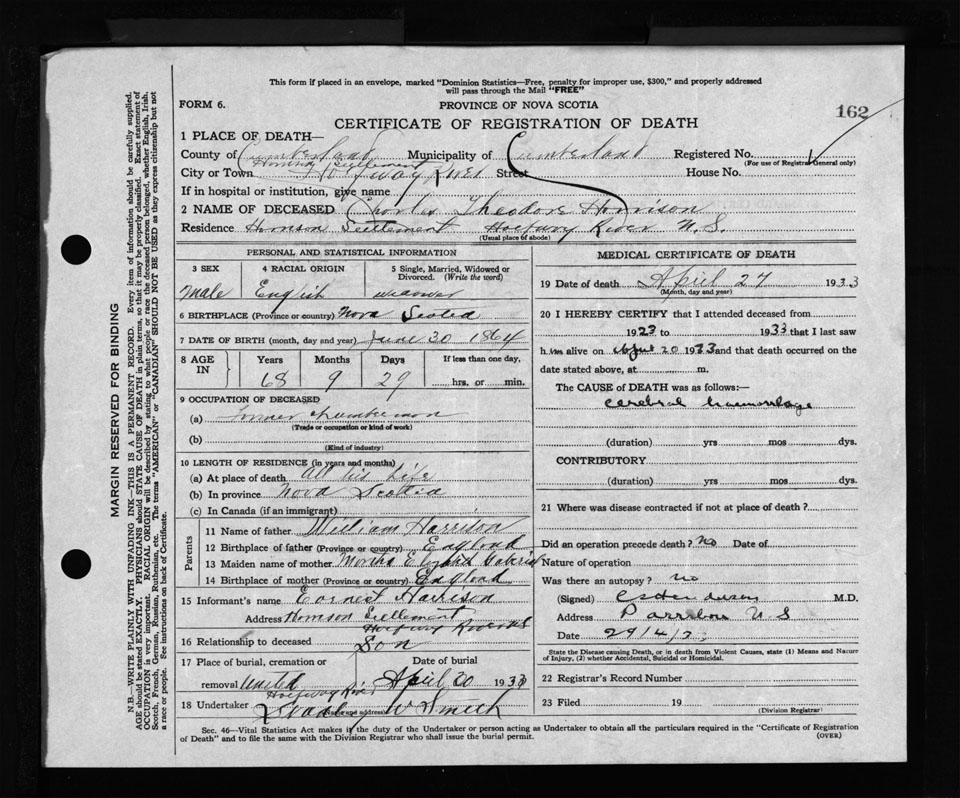 This form if placed in an envelope, marked "Dominion Statistics—Free, penalty for improper use, $300," and properly addressed
will pass through the Mail "FREE"
FORM 6.
PROVINCE OF NOVA SCOTIA
162
CERTIFICATE OF REGISTRATION OF DEATH
1 PLACE OF DEATH—
County of Cumberland Municipality of Cumberland Registered No.
(For use of Registrar General only)
City or Town Halfway River Street House No.
If in hospital or institution, give name
2 NAME OF DECEASED Charles Theodore Harrison
Residence Harrison Settlement Halfway River N.S.
(Usual place of abode)
PERSONAL AND STATISTICAL INFORMATION
3 SEX 4 RACIAL ORIGIN 5 Single, Married, Widowed or Divorced. (Write the word)
Male English widower
6 BIRTHPLACE (Province or country) Nova Scotia
7 DATE OF BIRTH (month, day and year) June 30 1864
8 AGE IN Years Months Days If less than one day,
68 9 29 hrs. or min.
9 OCCUPATION OF DECEASED
(a) Farmer Lumberman
(Trade or occupation or kind of work)
(b)
(Kind of industry)
10 LENGTH OF RESIDENCE (in years and months)
(a) At place of death All his Life
(b) In province Nova Scotia
(c) In Canada (if an immigrant)
Parents
11 Name of father William Harrison
12 Birthplace of father (Province or country) England
13 Maiden name of mother Martha
14 Birthplace of mother (Province or country) England
15 Informant's name Earnest Harrison
Address Harrison Settlement
Halfway River N.S.
16 Relationship to deceased Son
17 Place of burial, cremation or removal United Date of burial April 30 1933
Halfway River
18 Undertaker W Smith
Name and address
MEDICAL CERTIFICATE OF DEATH
19 Date of death April 27 1933
(Month, day and year)
20 I HEREBY CERTIFY that I attended deceased from
1923 to 1933 that I last saw
him alive on 20 1933 and that death occurred on the
date stated above, at m.
The CAUSE of DEATH was as follows:—
cerebral haemorrhage
(duration) yrs mos dys.
CONTRIBUTORY
(duration) yrs mos dys.
21 Where was disease contracted if not at place of death?
Did an operation precede death? No Date of
Nature of operation
Was there an autopsy? no
(Signed) M.D.
Address Parrsboro N S
Date 29/4/33
State the Disease causing Death, or in death from Violent Causes, state (1) Means and Nature
of Injury, (2) whether Accidental, Suicidal or Homicidal.
22 Registrar's Record Number
23 Filed 19
(Division Registrar)
Sec. 46—Vital Statistics Act makes it the duty of the Undertaker or person acting as Undertaker to obtain all the particulars required in the "Certificate of Registration
of Death" and to file the same with the Division Registrar who shall issue the burial permit.
(OVER)
MARGIN RESERVED FOR BINDING
N.B.—WRITE PLAINLY WITH UNFADING INK—THIS IS A PERMANENT RECORD. Every item of information should be carefully supplied.
AGE should be stated EXACTLY. PHYSICIANS should STATE CAUSE OF DEATH in plain terms, so that it may be properly classified. Exact statement of
OCCUPATION is very important. RACIAL ORIGIN will be described by stating to what people or race the deceased person belonged, whether English, Irish,
Scotch, French, German, Russian, Ruthenian, etc. The terms "AMERICAN" or "CANADIAN" SHOULD NOT BE USED as they express citizenship but not
a race or people. See instructions on back of Certificate.